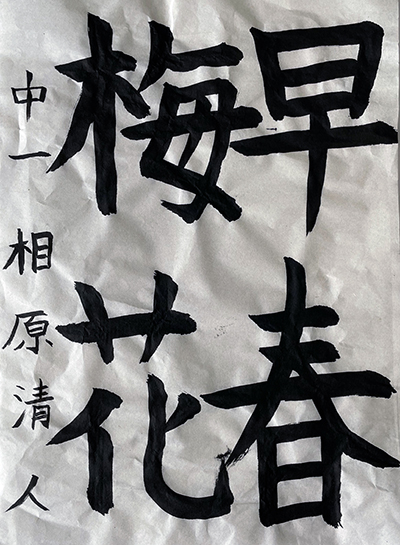 早春
梅花
中一 相原清人